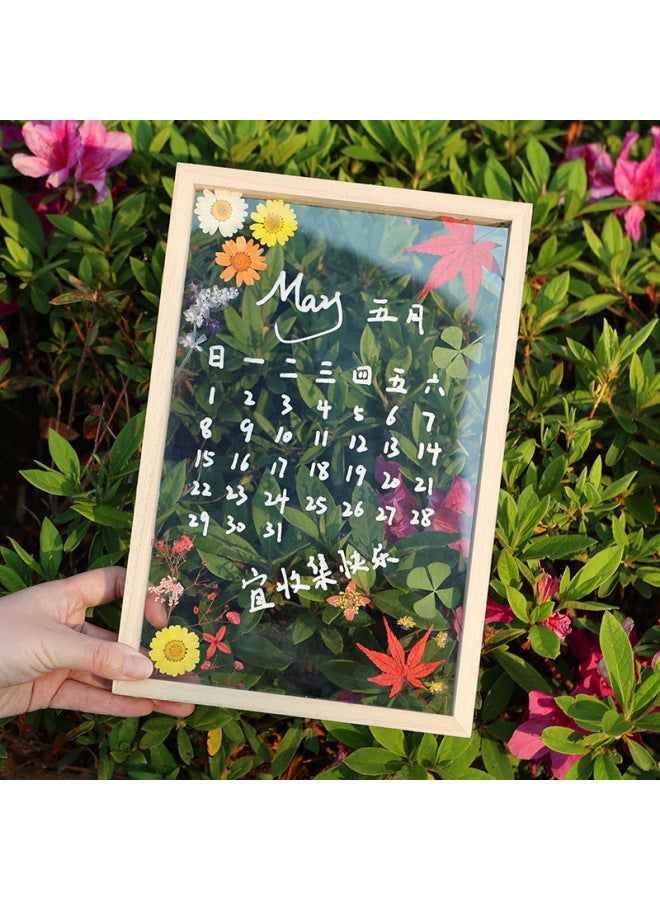 May 五月
日 一 二 三 四 五 六
1 2 3 4 5 6 7
8 9 10 11 12 13 14
15 16 17 18 19 20 21
22 23 24 25 26 27 28
29 30 31
宜收集快乐